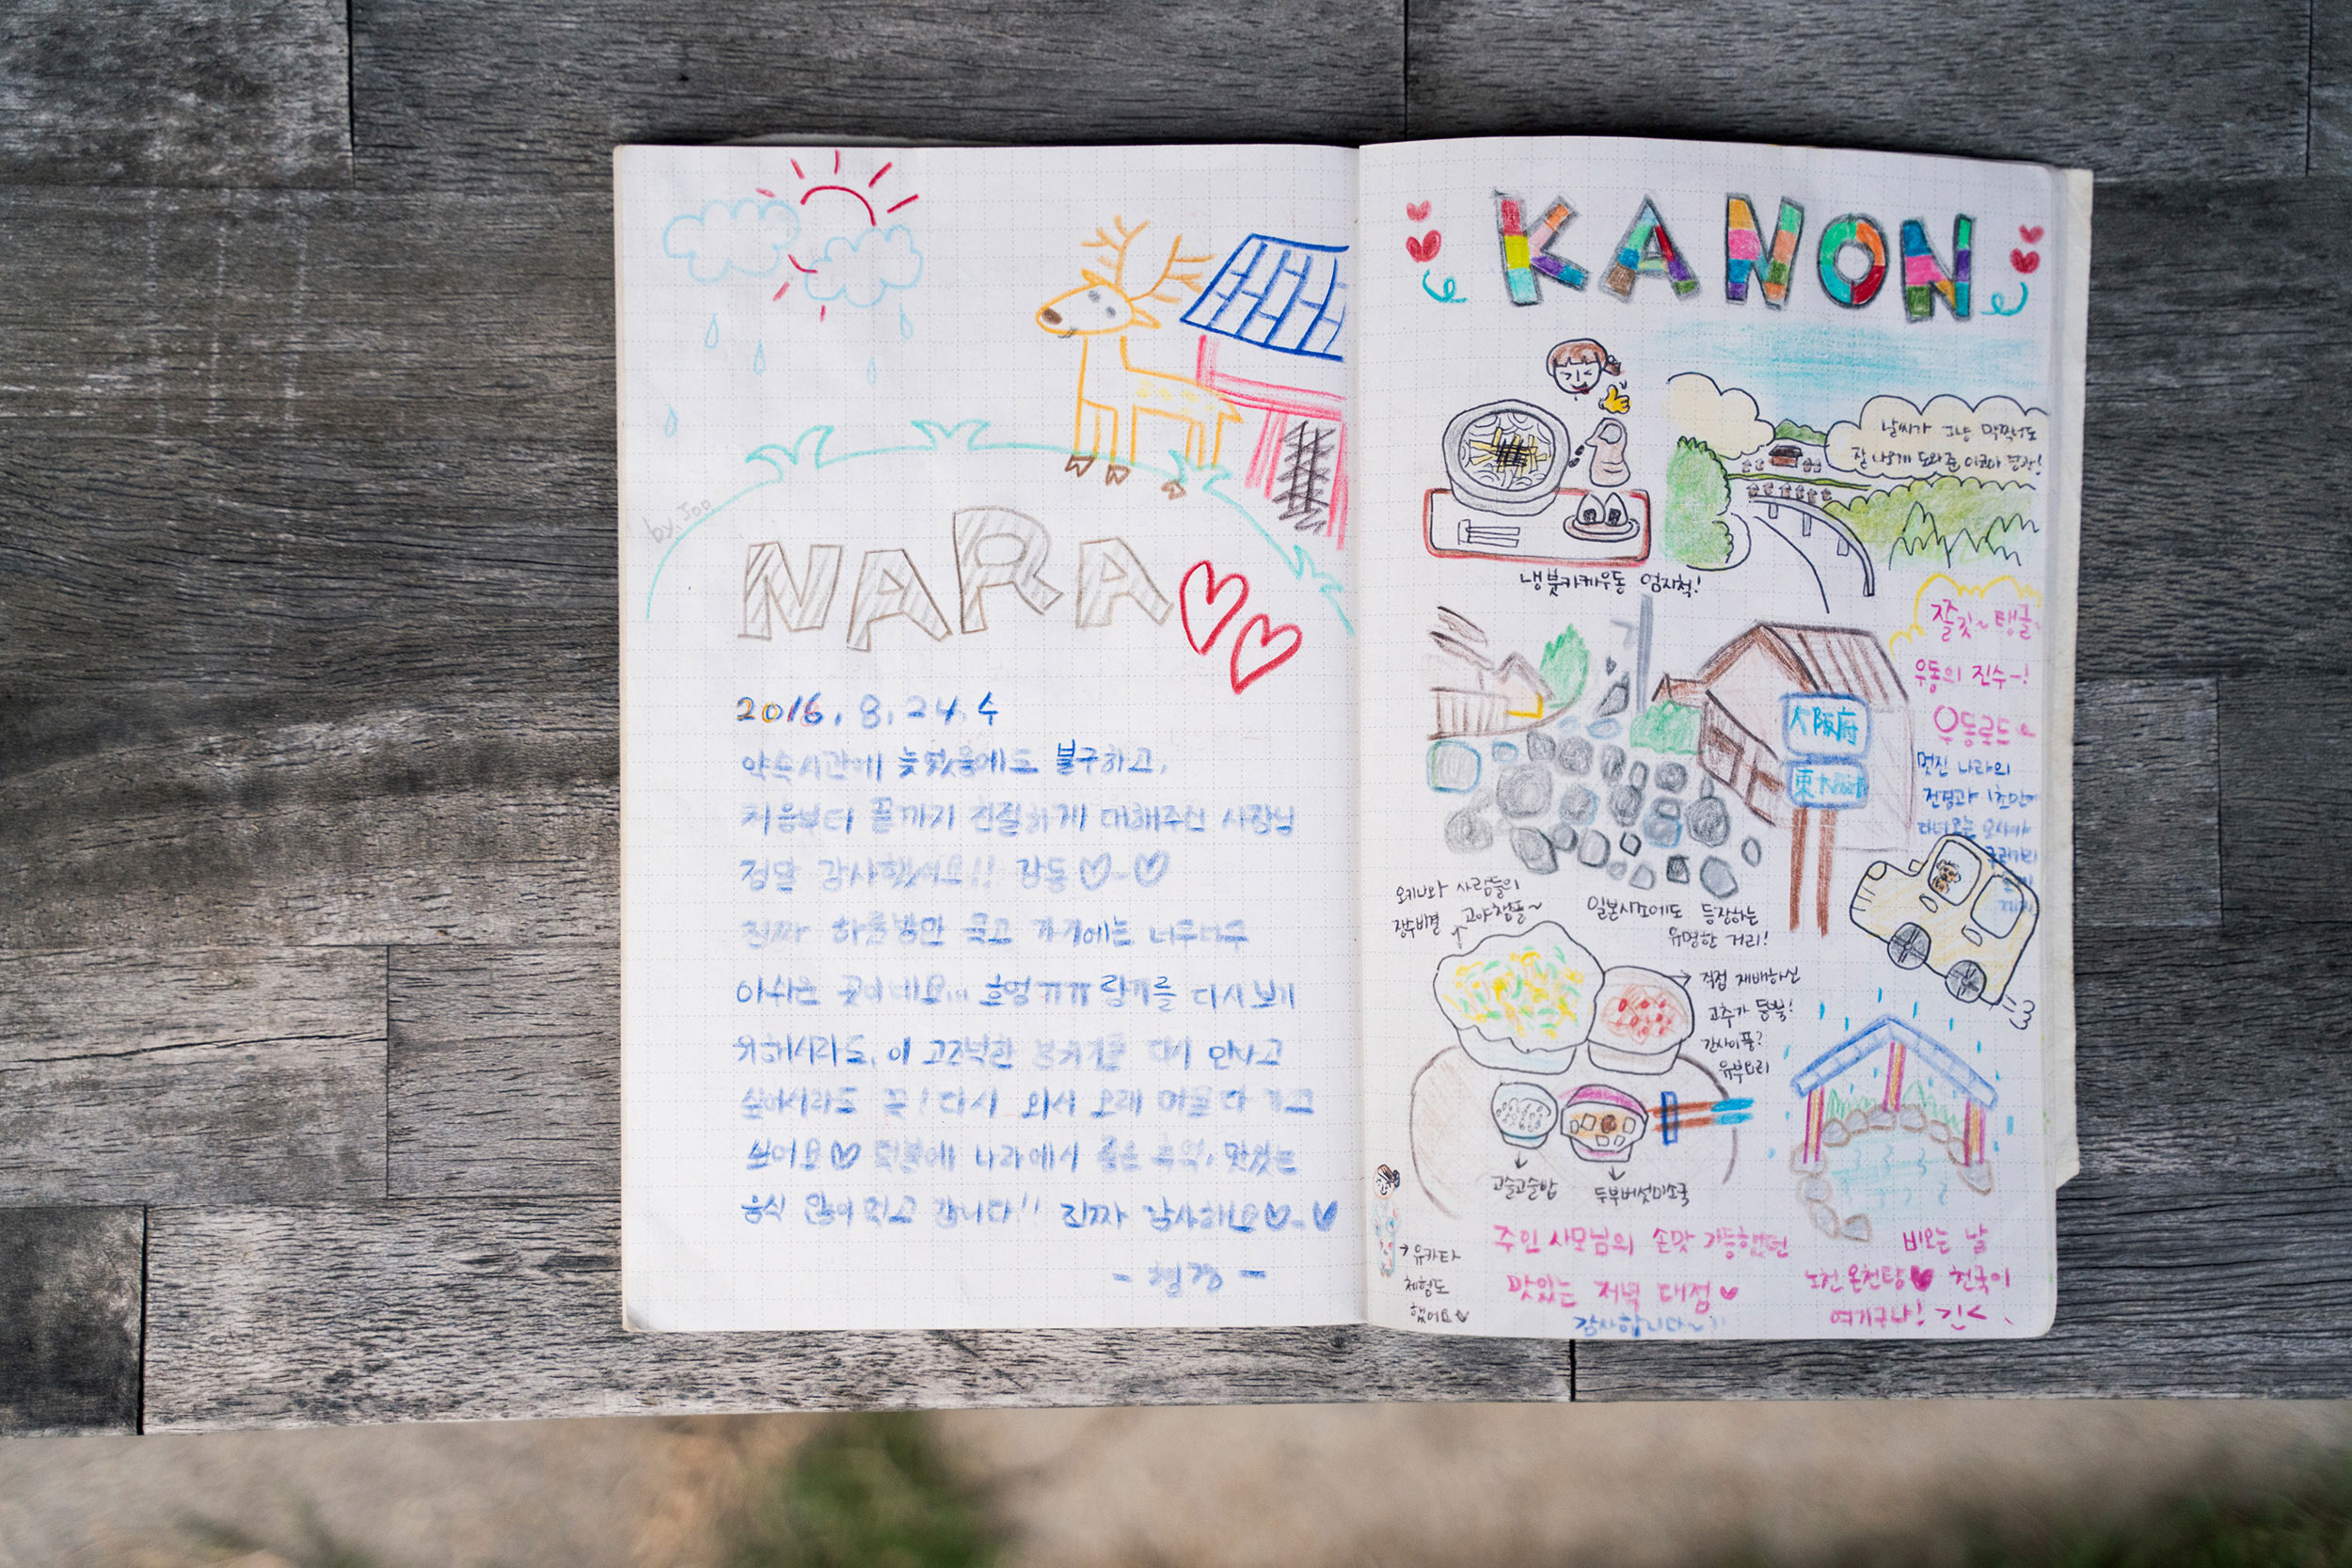 by. Joo
NARA
2016. 8. 24. 수
약속시간에 늦었음에도 불구하고,
처음부터 끝까지 친절하게 대해주신 사장님
정말 감사했어요!! 감동♡-♡
진짜 하룻밤만 묵고 가기에는 너무너무
아쉬운 곳이네요... 호명ㅠㅠ 랑끼를 다시 보기
위해서라도, 이 고즈넉한 분위기를 다시 안고
싶어서라도 꼭! 다시 와서 오래 머물다 가고
싶어요♡ 덕분에 나라에서 좋은 추억, 맛있는
음식 많이 먹고 갑니다!! 진짜 감사해요♡-♥
KANON
날씨가 그냥 막찍어도
잘 나오게 도와준
냉붓카케우동 엄지척!
쫄깃~ 탱글~
우동의 진수~!
우동로드~
멋진 나라의
전경과 1초만에
大阪府
오키나와 사람들의
장수비결 고야참플~
일본시조에도 등장하는
유명한 거리!
직접 재배하신
고추가 듬뿍!
간사이풍?
유부요리
고슬고슬밥
두부버섯미소국
→ 유카타
체험도
했어요♥
주인 사모님의 손맛 가득했던
맛있는 저녁 대접♥
감사합니다~!!
비오는 날
노천 온천탕♥ 천국이
여기구나!